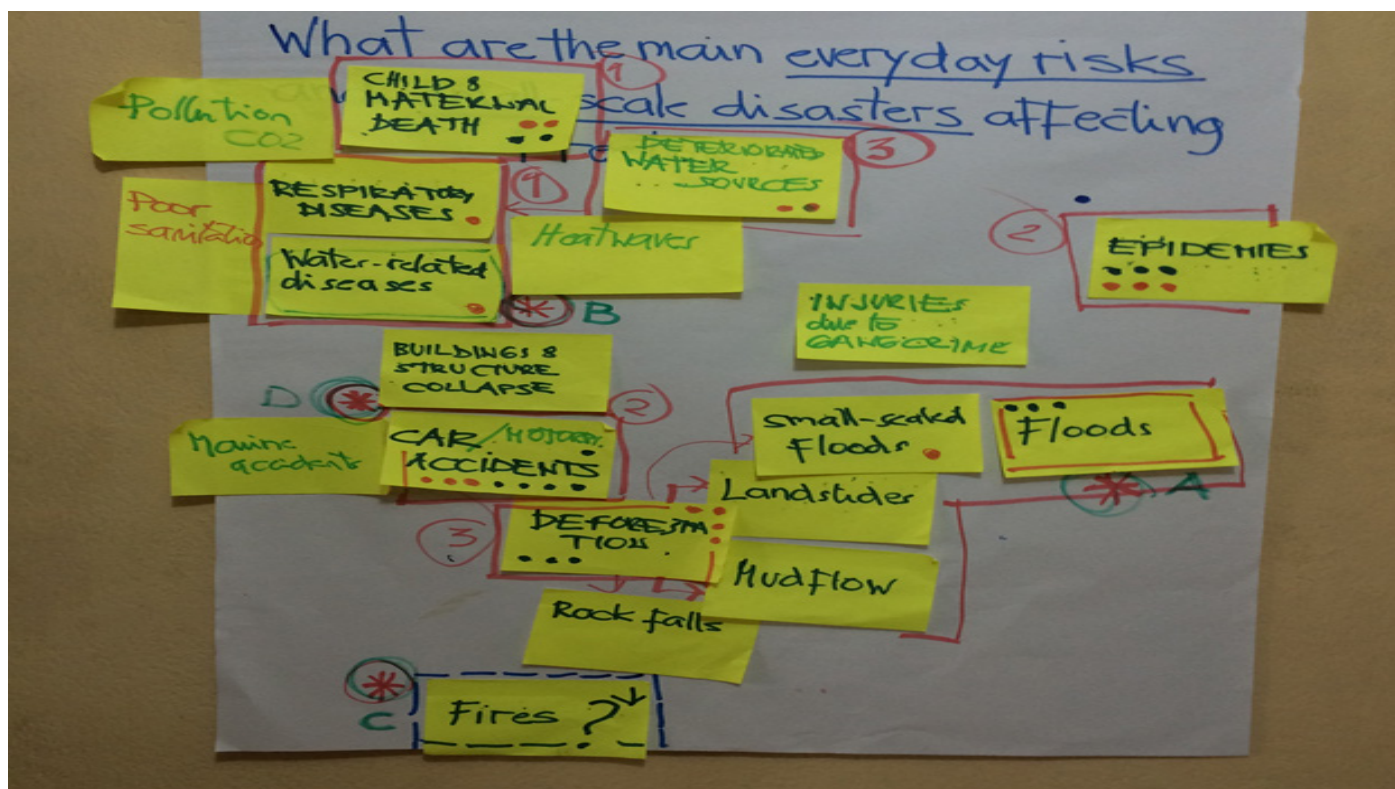 What are the main everyday risks
scale disasters affecting
Pollution
CO2
CHILD &
MATERNAL
DEATH
1
DETERIORATED
WATER
SOURCES
3
Poor
sanitation
RESPIRATORY
DISEASES
1
Water-related
diseases
B
Heatwaves
2
EPIDEMIES
INJURIES
due to
GANGCRIME
BUILDINGS &
STRUCTURE
COLLAPSE
D
2
Marine
accidents
CAR/MOTORBY
ACCIDENTS
small-scaled
Floods
Floods
A
Landslides
3
DEFORESTA
TION
Mudflow
Rock falls
C
Fires ?